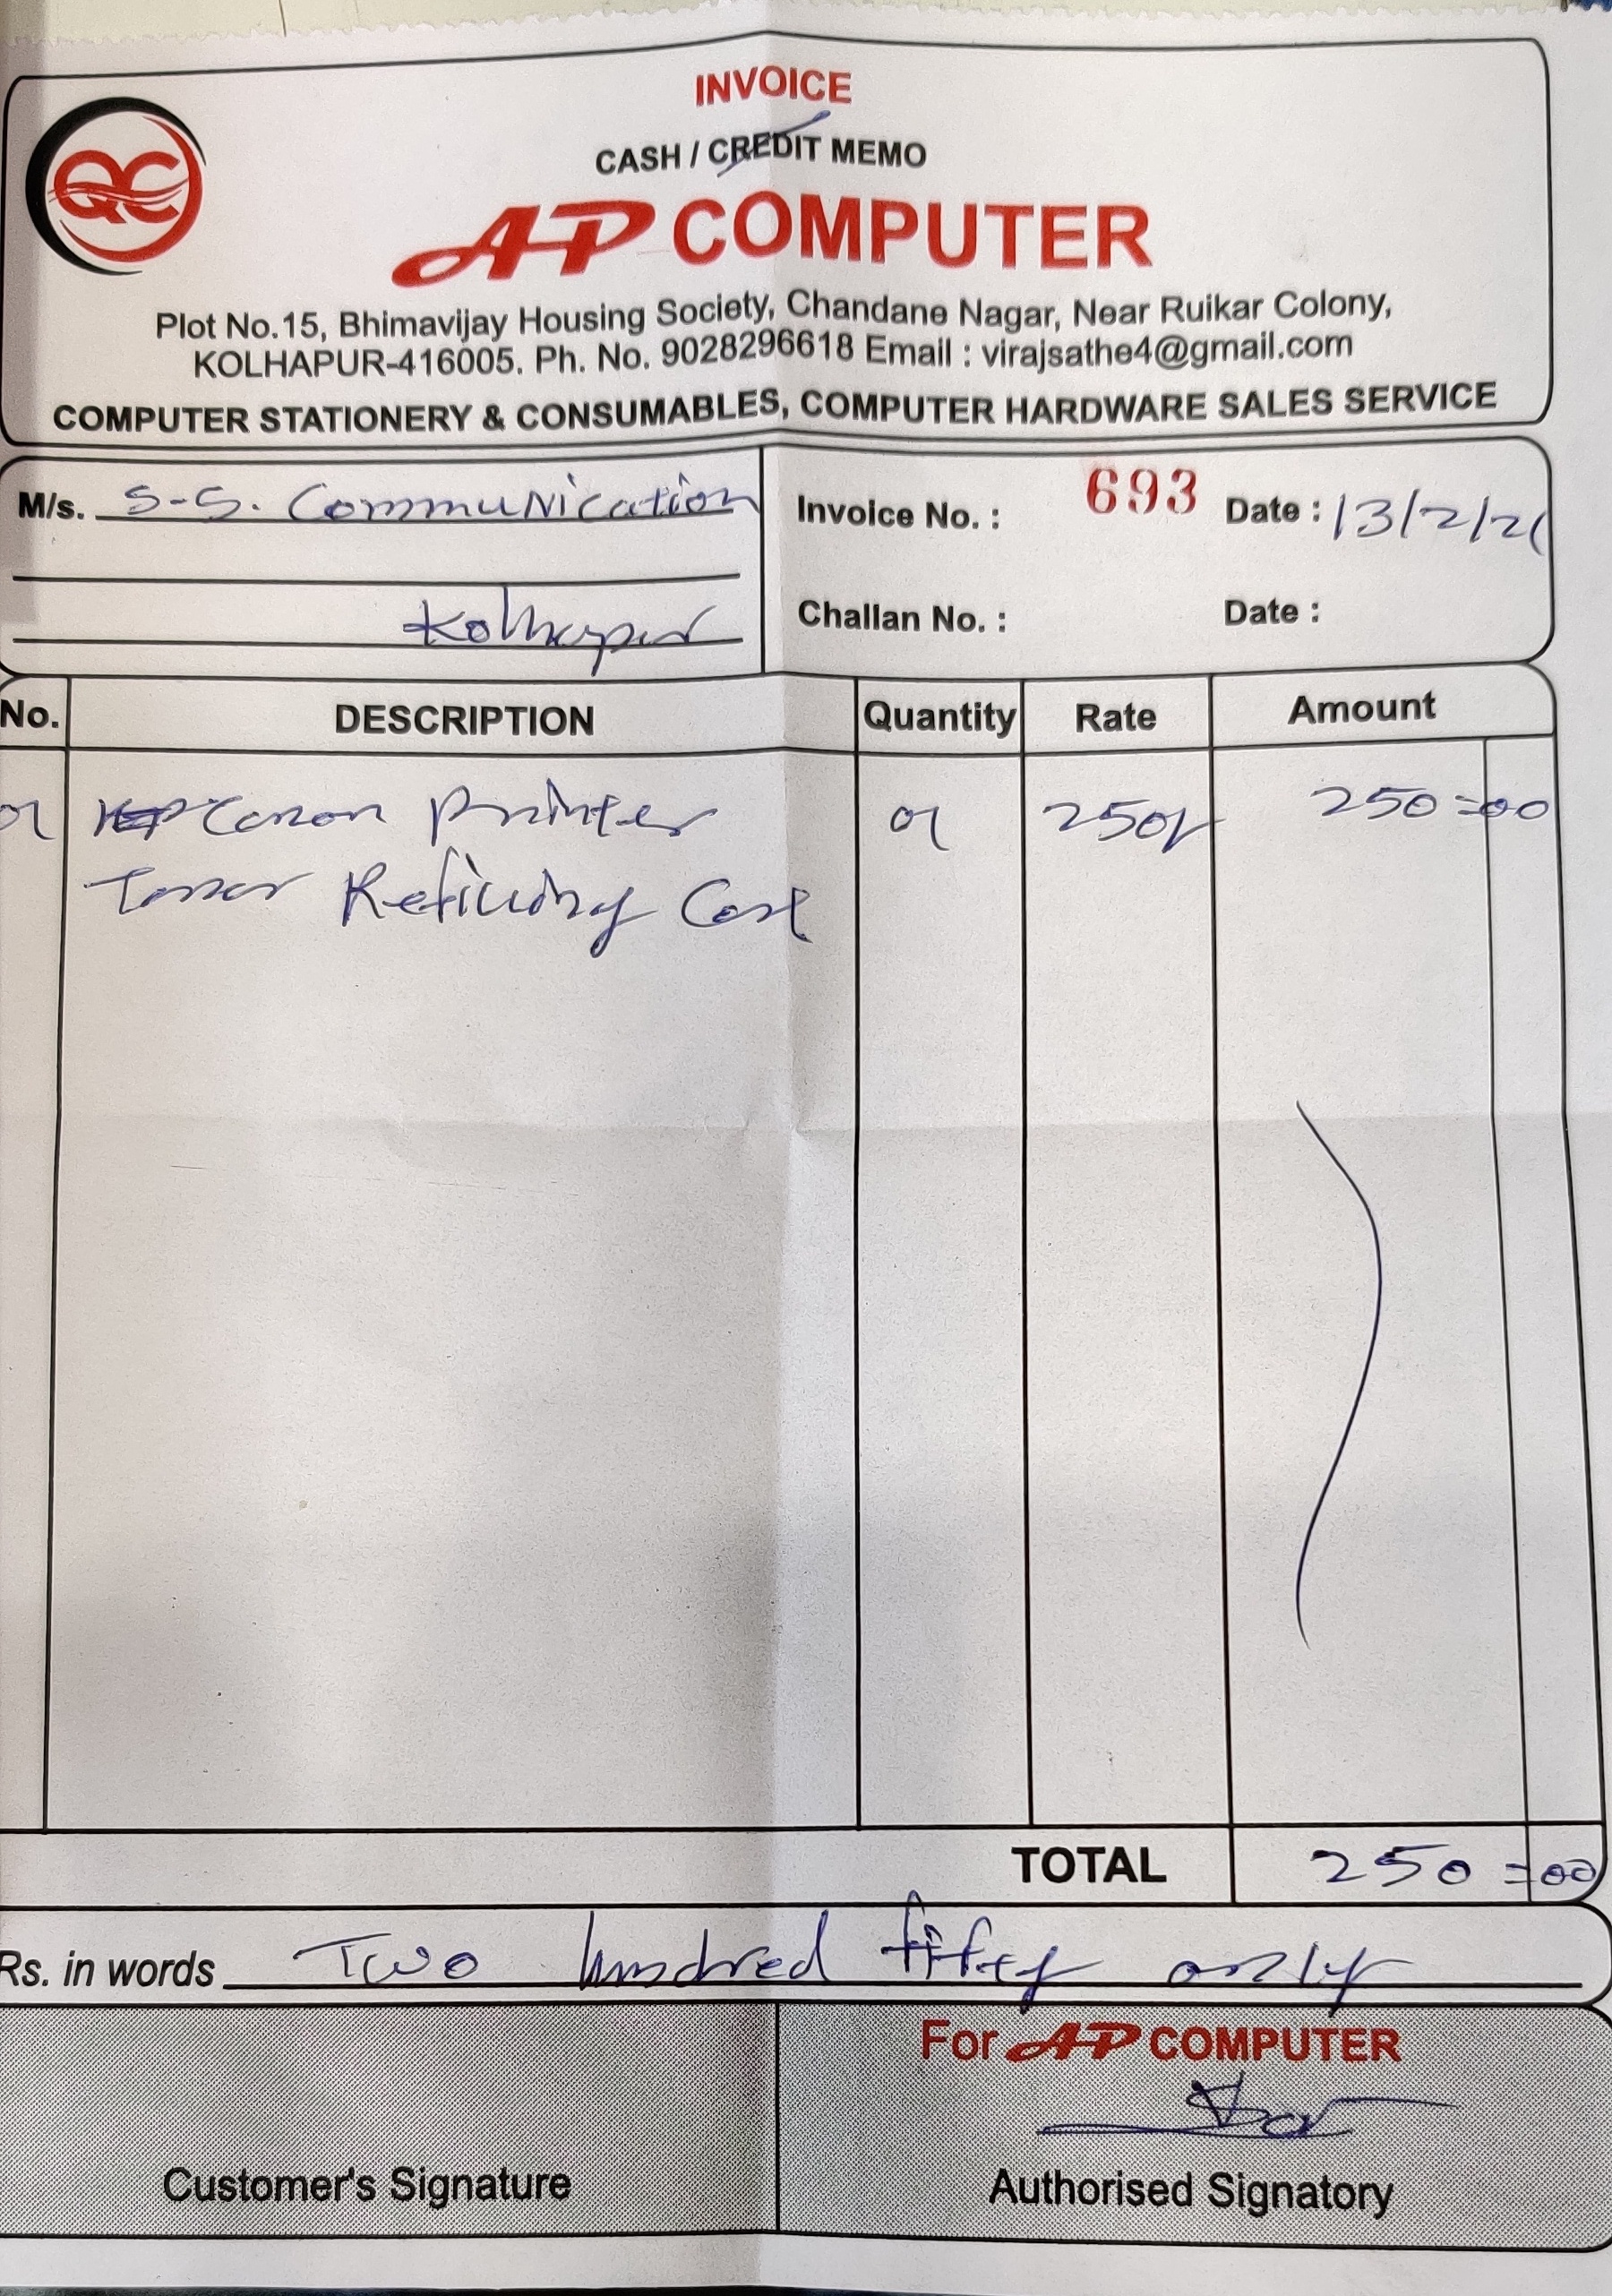 INVOICE
CASH / CREDIT MEMO
QC
AP COMPUTER
Plot No.15, Bhimavijay Housing Society, Chandane Nagar, Near Ruikar Colony,
KOLHAPUR-416005. Ph. No. 9028296618 Email : virajsathe4@gmail.com
COMPUTER STATIONERY & CONSUMABLES, COMPUTER HARDWARE SALES SERVICE
M/s. S-S. Communication
Kolhapur
Invoice No. : 693 Date : 13/2/2
Challan No. : Date :
No. DESCRIPTION Quantity Rate Amount
01 Canon Printer 01 250/- 250=00
Toner Refilling Cost
TOTAL 250=00
Rs. in words Two hundred fifty only
For AP COMPUTER
Customer's Signature Authorised Signatory